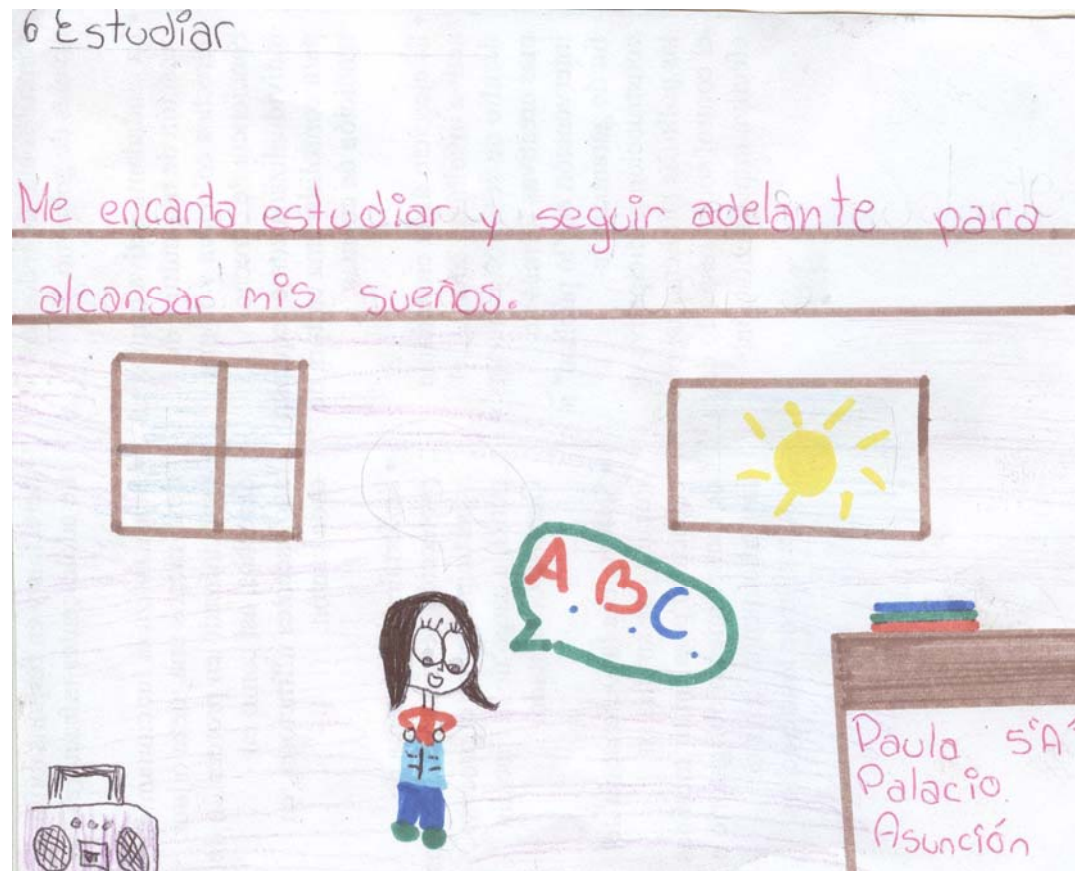 6 Estudiar
Me encanta estudiar y seguir adelante para
alcansar mis sueños.
A.B.C.
Paula 5ºA
Palacio.
Asunción